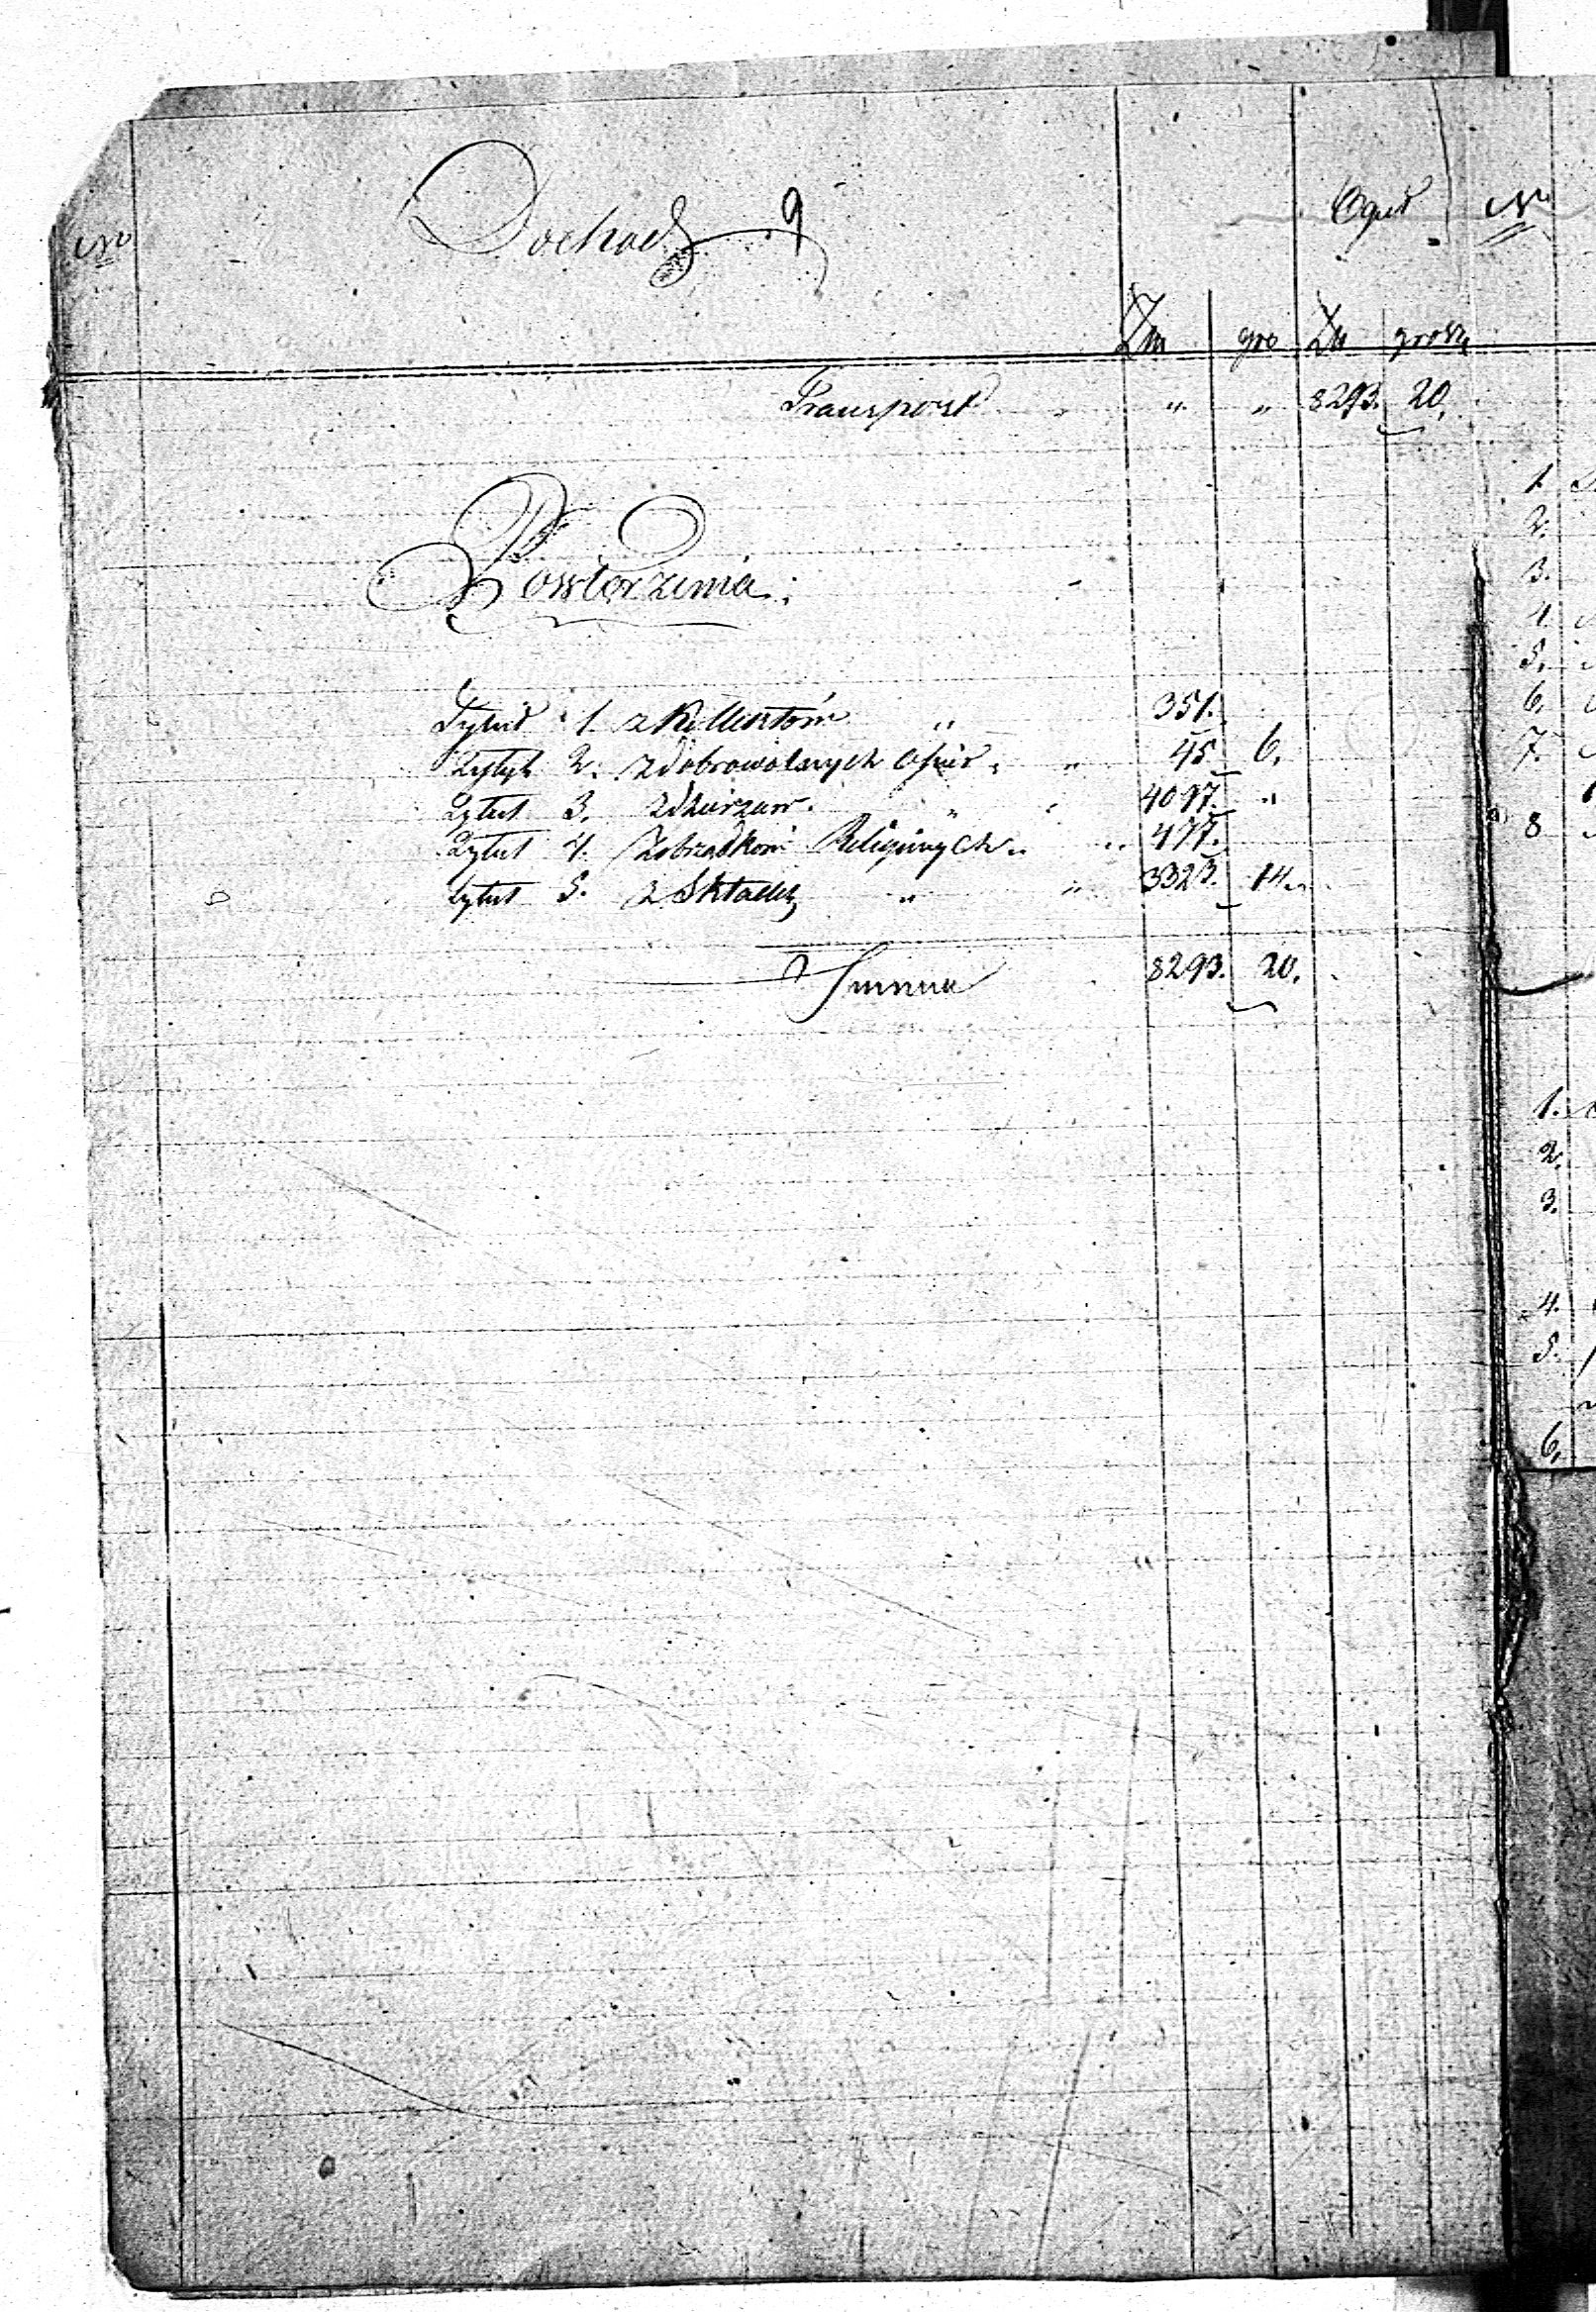 No Dochody 9 Ogół No
Złn gro Złn groszy
Transport " " 8293. 20.
Powtórzenia:
Tytuł 1. z " 351.
Tytuł 2. z dobrowolnych Ofiar " 45 6.
Tytuł 3. z dzierzaw. " 4097. "
Tytuł 4. z obrządków Religijnych " 477.
Tytuł 5. z Składek " " 3323. 14.
Summa 8293. 20.
1.
2.
3.
4.
5.
6.
7.
8
1.
2.
3.
4.
5.
6.